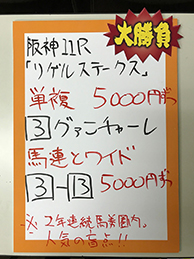 大勝負
阪神11R
「リゲルステークス」
単複 5000円ずつ
3 グァンチャーレ
馬連とワイド
3-13 5000円ずつ
※2年連続馬券圏内。
人気の盲点!!